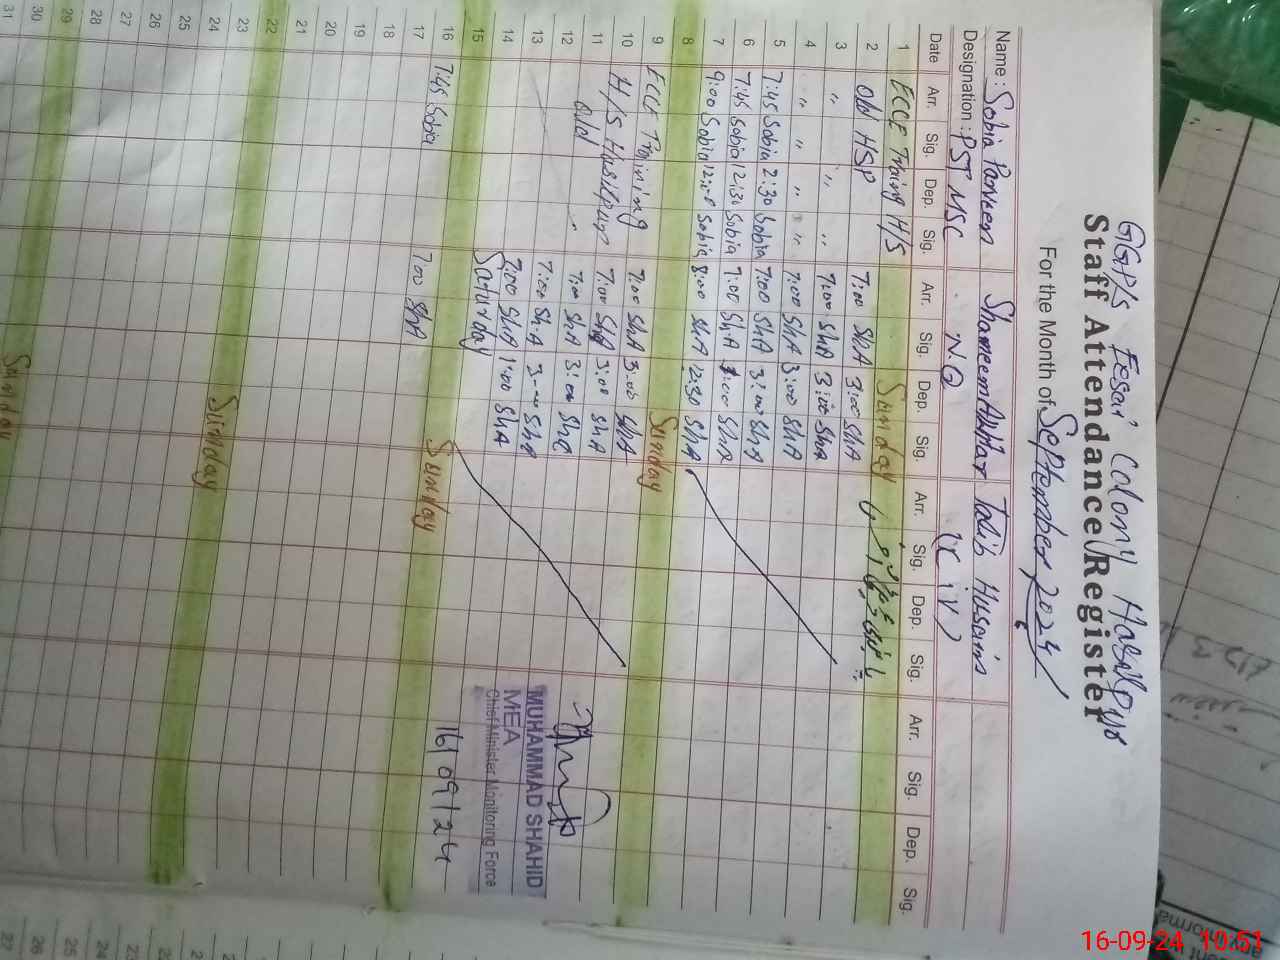 GGP/S Eesai Colony Hasilpur
Staff Attendance Register
For the Month of September 2024
Name : Sobia Parveen Shameem Akhtar Talib Husain
Designation : PST MSC N.Q (C.iv)
Date Arr. Sig. Dep. Sig. Arr. Sig. Dep. Sig. Arr. Sig. Dep. Sig. Arr. Sig. Dep. Sig.
1 ECCE Traing H/S Sunday
2 old HSP 7:00 ShA 3:00 ShA
3 " " " " 7:00 ShA 3:00 ShA
4 " " " " 7:00 ShA 3:00 ShA
5 7:45 Sobia 2:30 Sobia 7:00 ShA 3:00 ShA
6 7:45 Sobia 12:30 Sobia 7:00 ShA 1:00 ShA
7 9:00 Sobia 12:00 Sobia 8:00 ShA 12:30 ShA
8 Sunday
9 ECCE Training 7:00 ShA 3:00 ShA
10 H/S Hasilpur 7:00 ShA 3:00 ShA
11 old 7:00 ShA 3:00 ShA
12 7:00 ShA 3:00 ShA
13 7:00 ShA 1:00 ShA
14 Saturday
15 Sunday
16 7:45 Sobia 7:00 ShA
17
18
19
20
21
22 Sunday
23
24
25
26
27
28
29 Sunday
30
31
MUHAMMAD SHAHID
MEA
Chief Minister Monitoring Force
16/09/24
16-09-24 10:51